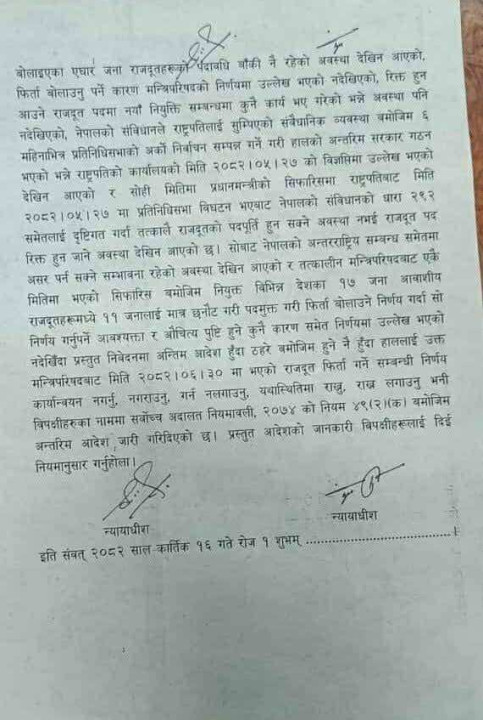 बोलाइएका एघार जना राजदूतहरूको पदावधि बाँकी नै रहेको अवस्था देखिन आएको,
फिर्ता बोलाउनु पर्ने कारण मन्त्रिपरिषदको निर्णयमा उल्लेख भएको नदेखिएको, रिक्त हुन
आउने राजदूत पदमा नयाँ नियुक्ति सम्बन्धमा कुनै कार्य भए गरेको भन्ने अवस्था पनि
नदेखिएको, नेपालको संविधानले राष्ट्रपतिलाई सुम्पिएको संवैधानिक व्यवस्था बमोजिम ६
महिनाभित्र प्रतिनिधिसभाको अर्को निर्वाचन सम्पन्न गर्ने गरी हालको अन्तरिम सरकार गठन
भएको भन्ने राष्ट्रपतिको कार्यालयको मिति २०८२।०५।२७ को विज्ञप्तिमा उल्लेख भएको
देखिन आएको र सोही मितिमा प्रधानमन्त्रीको सिफारिसमा राष्ट्रपतिबाट मिति
२०८२।०५।२७ मा प्रतिनिधिसभा विघटन भएबाट नेपालको संविधानको धारा २९२
समेतलाई दृष्टिगत गर्दा तत्कालै राजदूतको पदपूर्ति हुन सक्ने अवस्था नभई राजदूत पद
रिक्त हुन जाने अवस्था देखिन आएको छ। सोबाट नेपालको अन्तरराष्ट्रिय सम्बन्ध समेतमा
असर पर्न सक्ने सम्भावना रहेको अवस्था देखिन आएको र तत्कालीन मन्त्रिपरिषदबाट एकै
मितिमा भएको सिफारिस बमोजिम नियुक्त विभिन्न देशका १७ जना आवाशीय
राजदूतहरूमध्ये ११ जनालाई मात्र छनौट गरी पदमुक्त गरी फिर्ता बोलाउने निर्णय गर्दा सो
निर्णय गर्नुपर्ने आवश्यक्ता र औचित्य पुष्टि हुने कुनै कारण समेत निर्णयमा उल्लेख भएको
नदेखिँदा प्रस्तुत निवेदनमा अन्तिम आदेश हुँदा ठहरे बमोजिम हुने नै हुँदा हाललाई उक्त
मन्त्रिपरिषदबाट मिति २०८२।०६।३० मा भएको राजदूत फिर्ता गर्ने सम्बन्धी निर्णय
कार्यान्वयन नगर्नु, नगराउनु, गर्न नलगाउनु, यथास्थितिमा राख्नु, राख्न लगाउनु भनी
विपक्षीहरुका नाममा सर्वोच्च अदालत नियमावली, २०७४ को नियम ४९(२)(क) बमोजिम
अन्तरिम आदेश जारी गरिदिएको छ। प्रस्तुत आदेशको जानकारी विपक्षीहरूलाई दिई
नियमानुसार गर्नुहोला।
न्यायाधीश न्यायाधीश
इति संवत् २०८२ साल कार्तिक १६ गते रोज १ शुभम् ........................................।